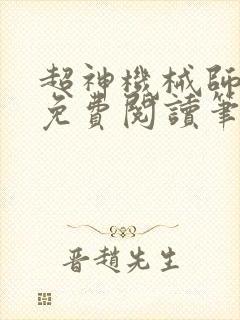 超神機械師
免費閱讀筆
晋趙先生